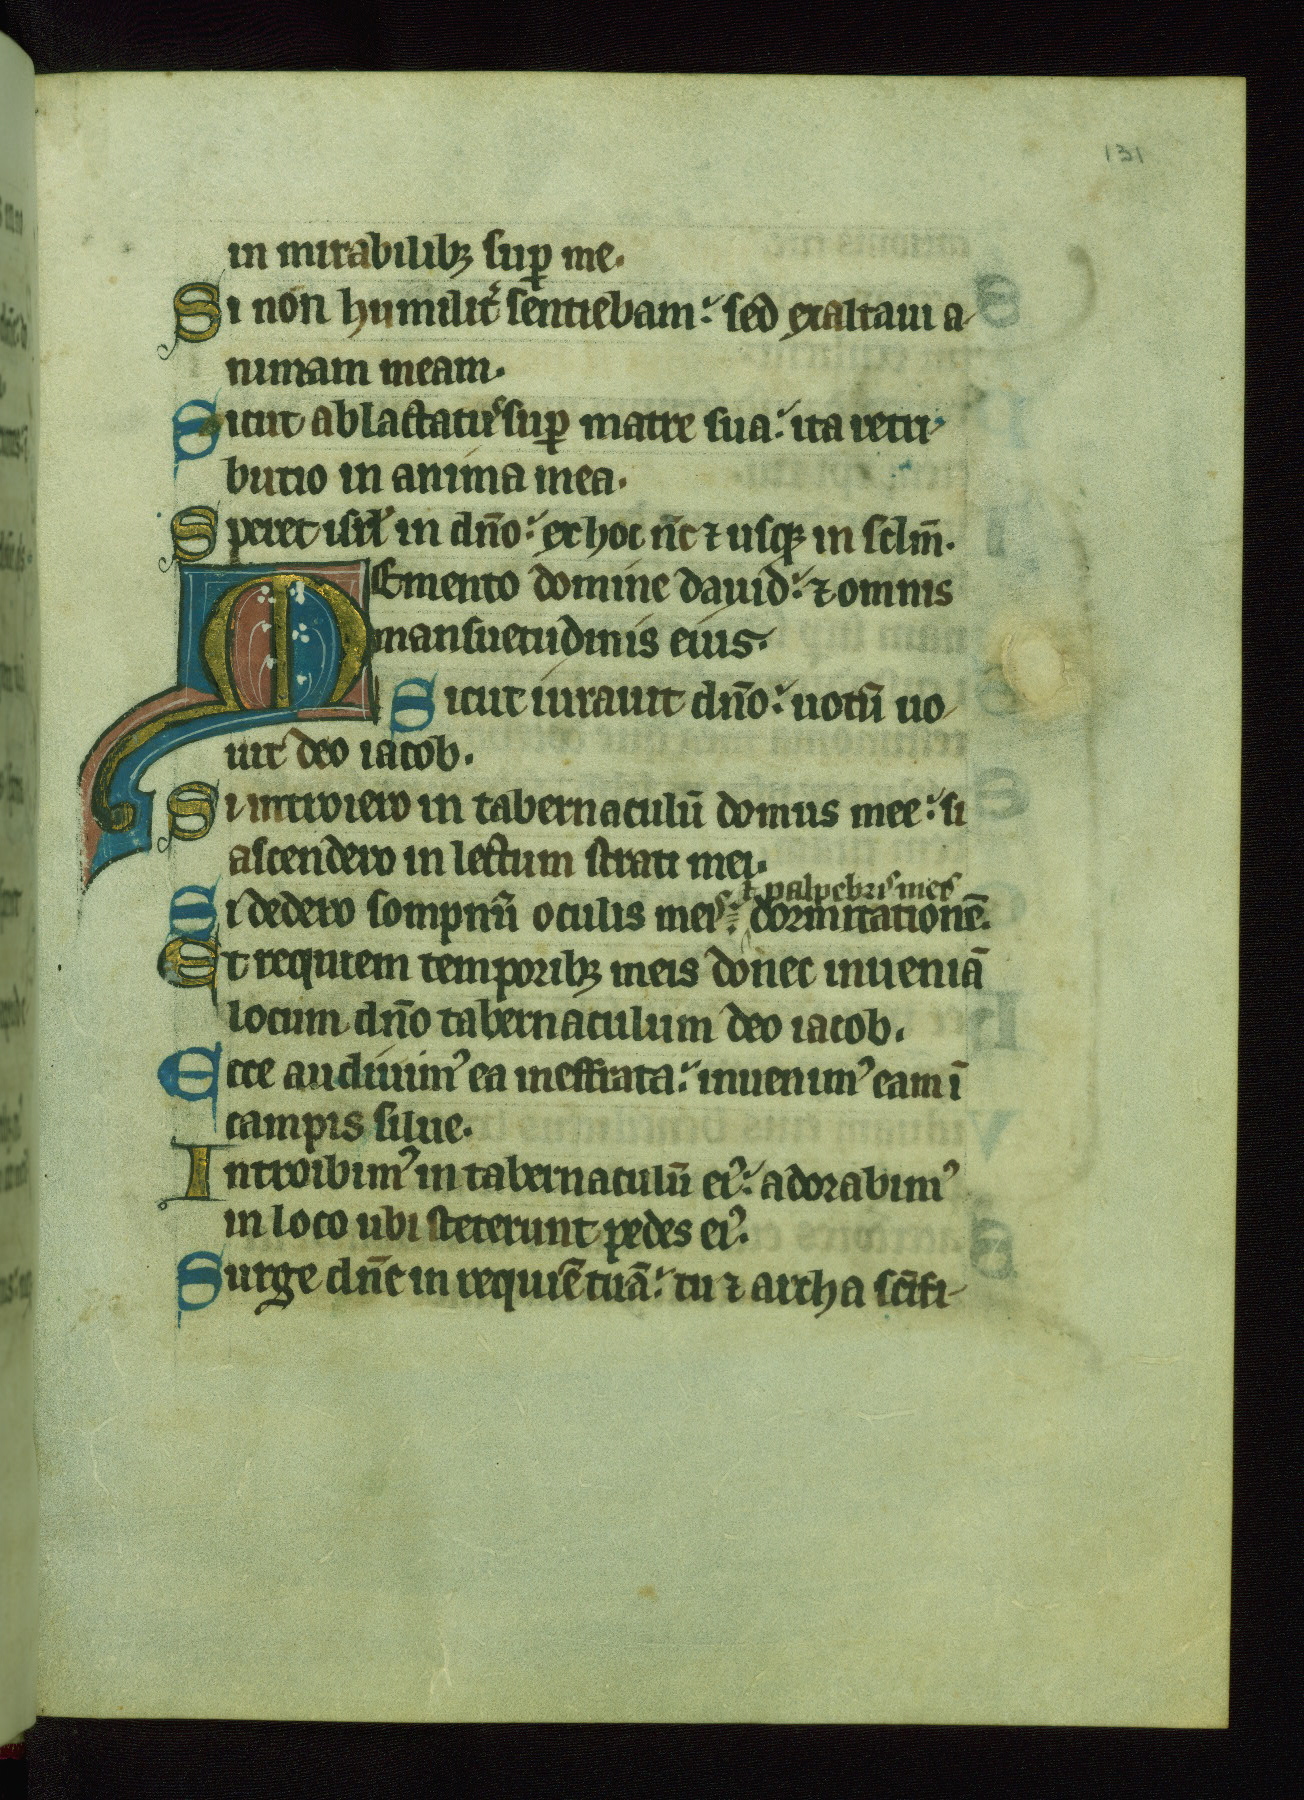 131
in mirabilibꝫ suꝑ me.
Si non humilit͛ sentiebam: sed exaltaui a-
nimam meam.
Sicut ablactatus suꝑ matre sua: ita retri-
butio in anima mea.
Speret isrl̓ in dn̄o: ex hoc nc̄ ⁊ usqꝫ in sclm̄.
Memento domine dauid: ⁊ omnis
mansuetudinis eius.
Sicut iurauit dn̄o: uotū uo-
uit deo iacob.
Si introiero in tabernaculū domus mee: si
ascendero in lectum strati mei.
⁊ palpebris meis
Si dedero sompnū oculis meis: dormitationē.
Et requiem temporibꝫ meis donec inueniā
locum dn̄o tabernaculum deo iacob.
Ecce audiuimꝰ ea in effrata: inuenimꝰ eam ī
campis silue.
Introibimꝰ in tabernaculū eiꝰ: adorabimꝰ
in loco ubi steterunt pedes eiꝰ.
Surge dn̄e in requiē tuā: tu ⁊ archa scīfi-